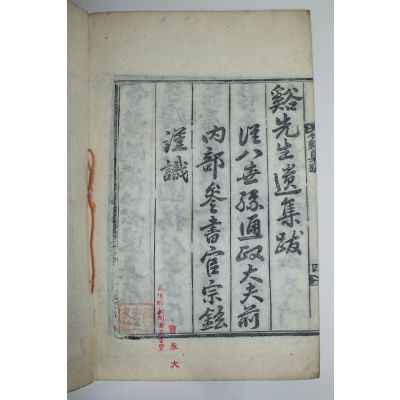 谿先生遺集跋
從八世孫通政大夫前
內部參書官宗鉉
謹識